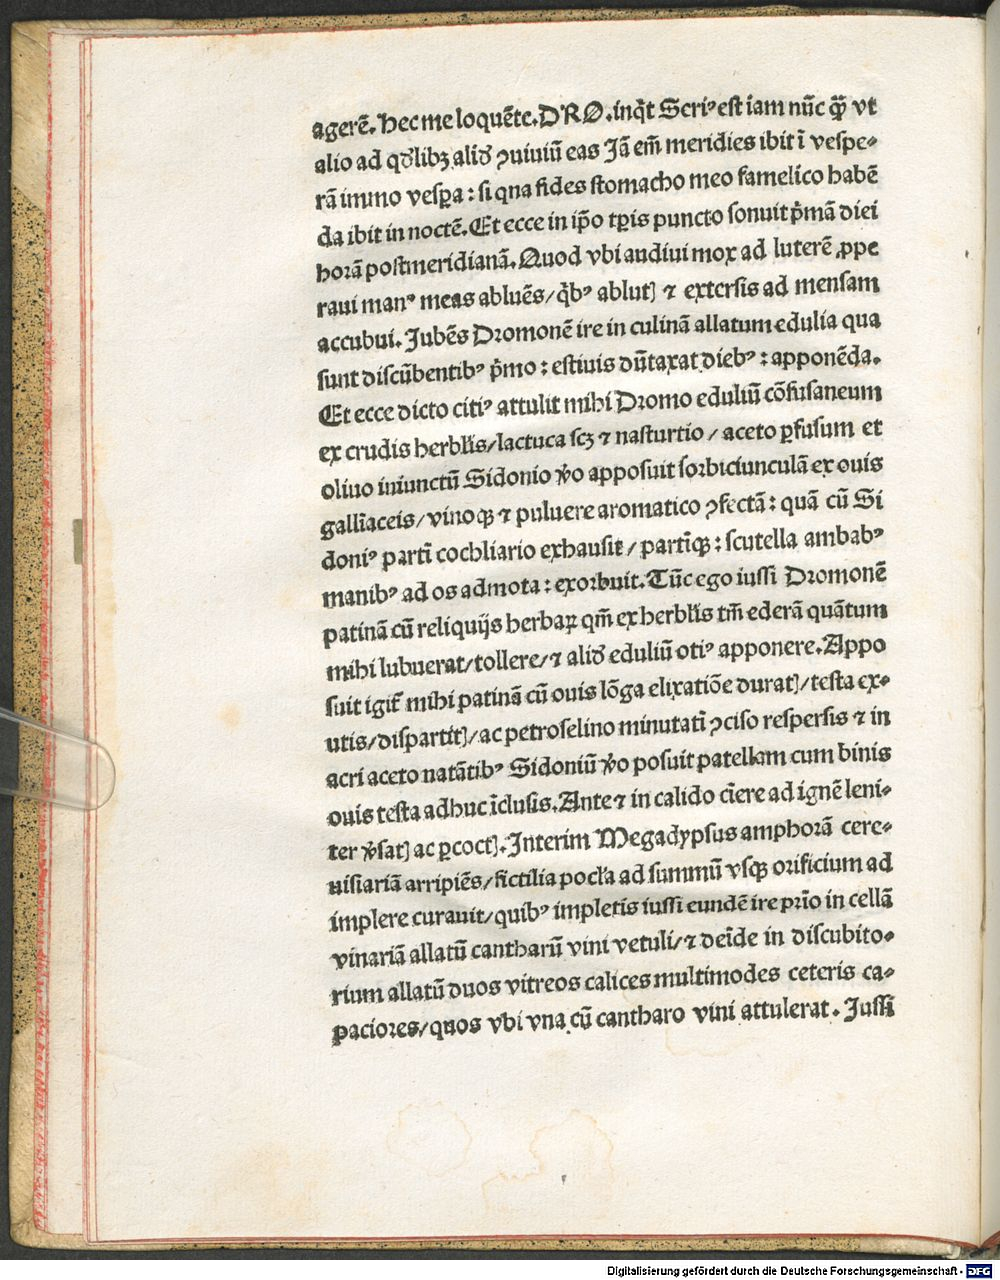 agerē. Hec me loquēte. DRO. inq̄t Seriꝰ est iam nūc q̄ꝫ vt
alio ad qd̄libꝫ aliđ ꝯuiuiū eas Jā em̄ meridies ibit ī vespe⸗
rā immo vesꝑa : si qna fides stomacho meo famelico habē
da ibit in noctē. Et ecce in ip̄o tꝑis puncto sonuit p̄mā diei
horā postmeridianā. Quod vbi audiui mox ad luterē ꝓpe
raui manꝰ meas abluēs/ q̄bꝰ ablutꝭ ⁊ extersis ad mensam
accubui. Jubēs Dromonē ire in culinā allatum edulia qua
sunt discūbentibꝰ p̄mo : estiuis dūtaxat diebꝰ : apponēda.
Et ecce dicto citiꝰ attulit mihi Dromo eduliū cōfusaneum
ex crudis herbl̄is/ lactuca scꝫ ⁊ nasturtio / aceto ꝑfusum et
oliuo iniunctū Sidonio v̄o apposuit sorbiciunculā ex ouis
gallīaceis/ vinoqꝫ ⁊ puluere aromatico ꝯfectā : quā cū Si
doniꝰ partī cochliario exhausit / partīqꝫ : scutella ambabꝰ
manibꝰ ad os admota : exorbuit. Tūc ego iussi Dromonē
patinā cū reliquijs herbaꝝ qm̄ ex herbl̄is tm̄ ederā quātum
mihi lubuerat/ tollere/ ⁊ aliđ eduliū otiꝰ apponere. Appo
suit igit᷑ mihi patinā cū ouis lōga elixatiōe duratꝭ/ testa ex⸗
utis/ dispartītꝭ/ ac petroselino minutatī ꝯciso respersis ⁊ in
acri aceto natātibꝰ Sidoniū v̄o posuit patellam cum binis
ouis testa adhuc īclusis. Ante ⁊ in calido cīere ad ignē leni⸗
ter v̄satꝭ ac ꝑcoctꝭ. Interim Megadypsus amphorā cere⸗
uisiariā arripiēs/ fictilia pocl̄a ad summū vsqꝫ orificium ad
implere curauit/ quibꝰ impletis iussi eundē ire pr̄io in cellā
vinariā allatū cantharū vini vetuli/ ⁊ deīde in discubito⸗
rium allatū duos vitreos calices multimodes ceteris ca⸗
paciores/ quos vbi vna cū cantharo vini attulerat. Jussi
Digitalisierung gefördert durch die Deutsche Forschungsgemeinschaft - DFG